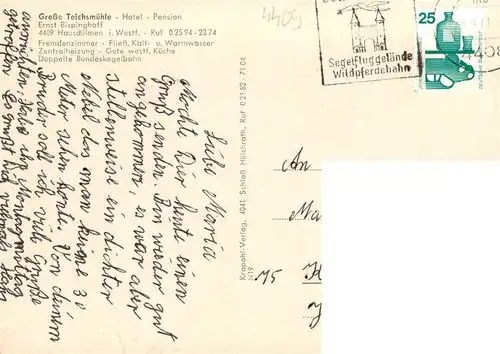 Große Teichsmühle - Hotel - Pension
Ernst Bispinghoff
4409 Hausdülmen i. Westf. - Ruf 0 25 94 - 23 74
Fremdenzimmer - Fließ. Kalt- u. Warmwasser
Zentralheizung - Gute westf. Küche
Doppelte Bundeskegelbahn
4409
Segelfluggelände
Wildpferdebahn
25
Liebe Maria
Möchte Dir heute einen
Gruß senden. Bin wieder gut
angekommen, es war aber
stellenweise ein dichter
Nebel das man kaume 3
Meter sehen konte. Von deinem
Bruder soll ich viele Grüße
ausrichten habe ihn Montagmittag
getroffen. Es grüßt Dich vielmals
Krapohl-Verlag, 4041 Schloß Hülchrath, Ruf 0 21 82 - 71 04
N19
An
Ma
75